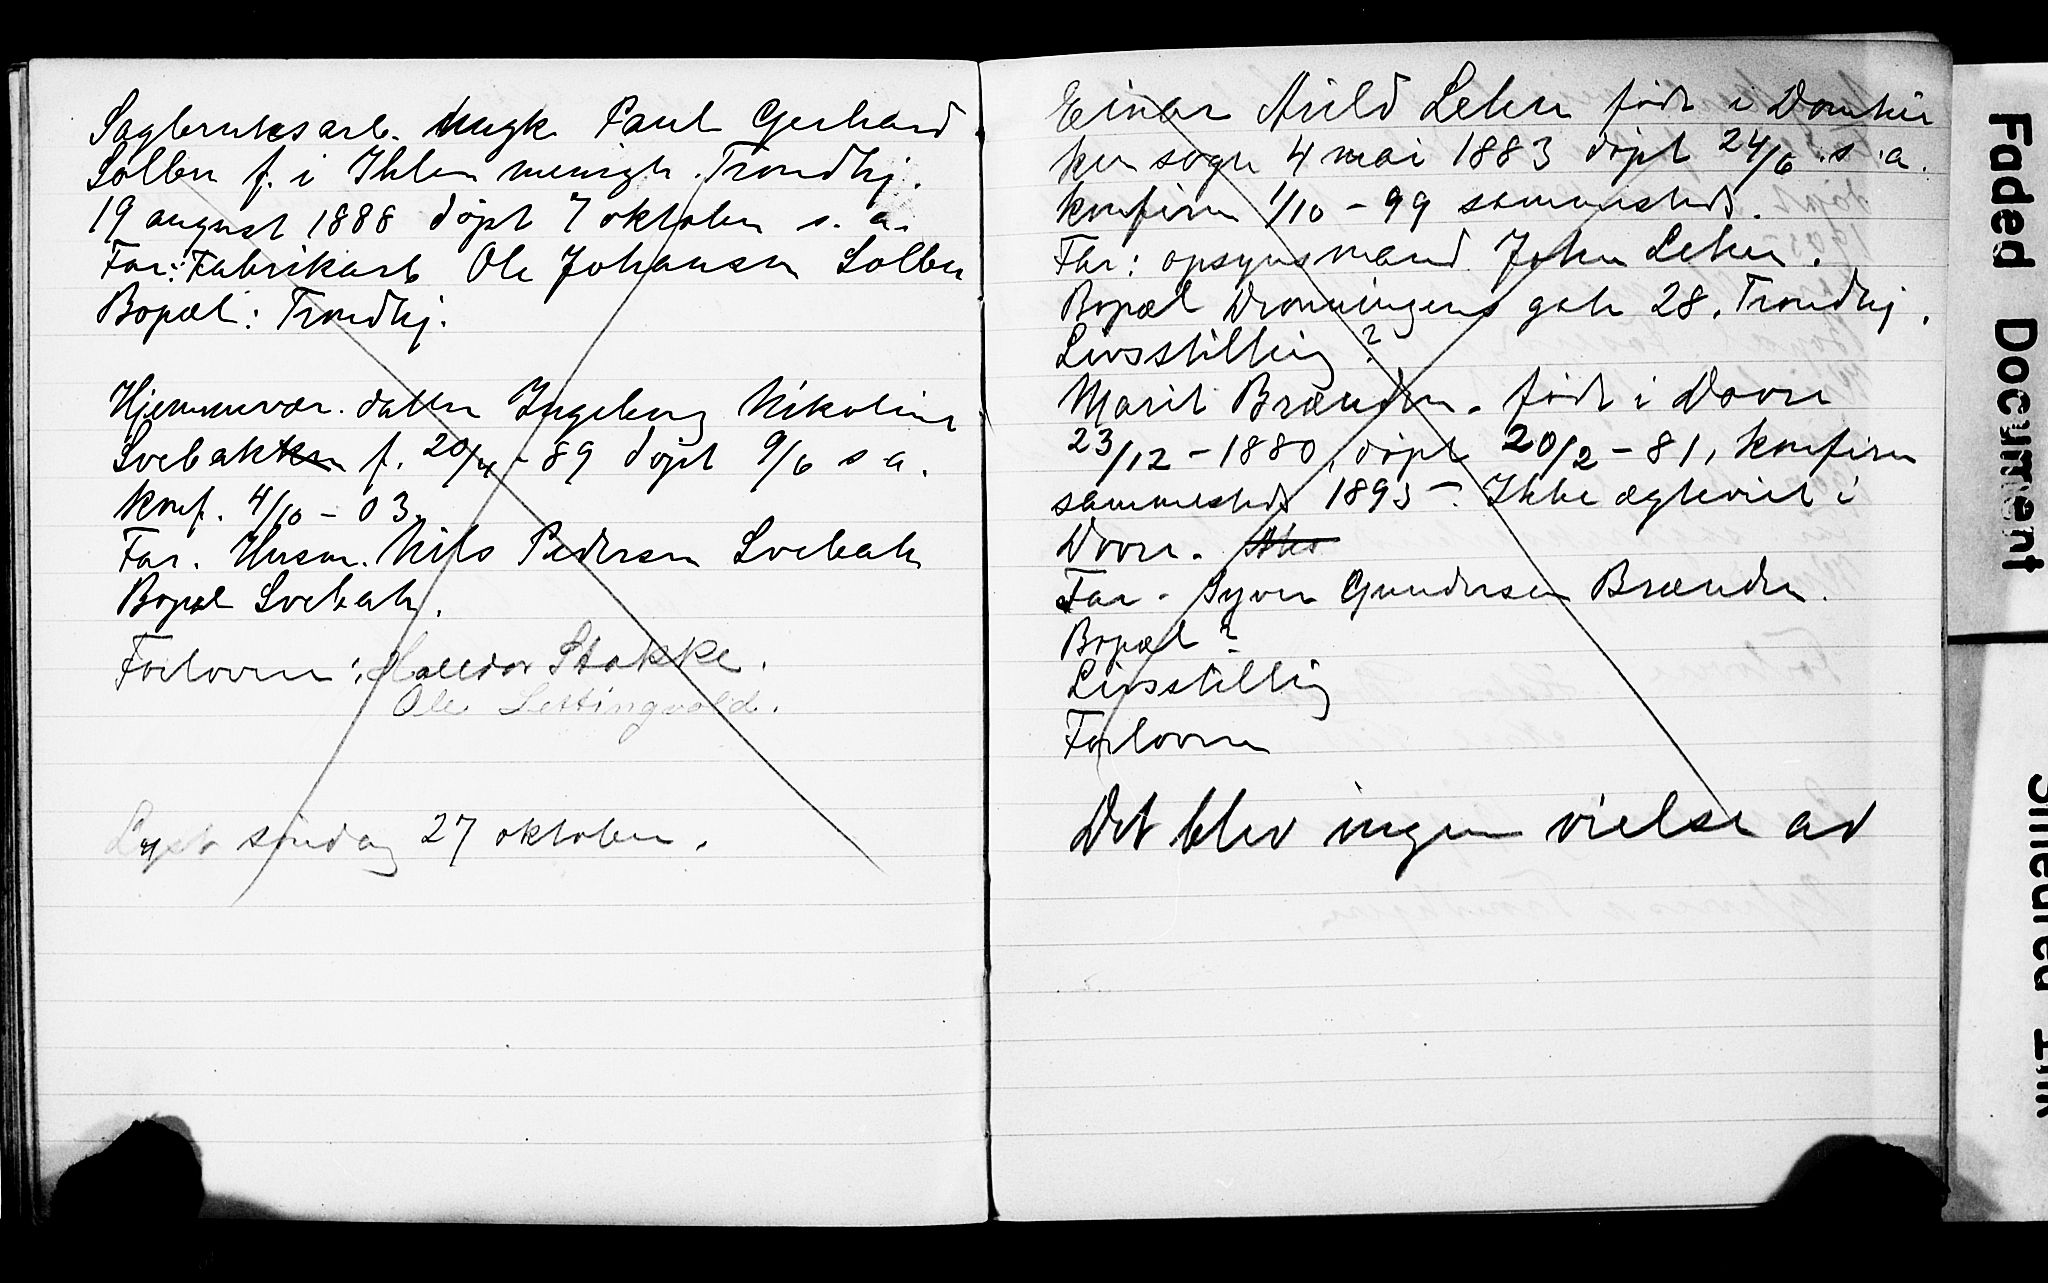 Sagbruksarb. Ungk. Paul Gerhard
Solberg f. i Ihlen menigh. Trondhj.
19 august 1888 døpt 7 oktober s. a.
Far: Fabrikarb Ole Johansen Solberg
Bopæl: Trondhj.
Hjemmevær. datter Ingeborg Nikoline
Svebakken f. 20/4 - 89 døpt 9/6 s a.
konf. 4/10 - 03.
Far. Husm. Nils Pedersen Svebakk
Bopæl Svebakk.
Forlovere: Halldor Stokke.
Ole Settingvold.
Lyst søndag 27 oktober.
Einar Arild Lehn født i Domkir
ken sogn 4 mai 1883 døpt 24/6 s. a.
konfirm 1/10 - 99 sammesteds.
Far: opsynsmand John Lehn.
Bopæl Dronningens gate 28. Trondhj.
Livsstilling?
Marit Brænden. født i Dovre
23/12 - 1880, døpt 20/2 - 81, konfirm
sammesteds 1895 - Ikke ægteviet i
Dovre.
Far. Syver Gundersen Brænden.
Bopæl?
Livsstilling
Forlovere
Det blev ingen vielse av
Faded Document
Smeared Ink